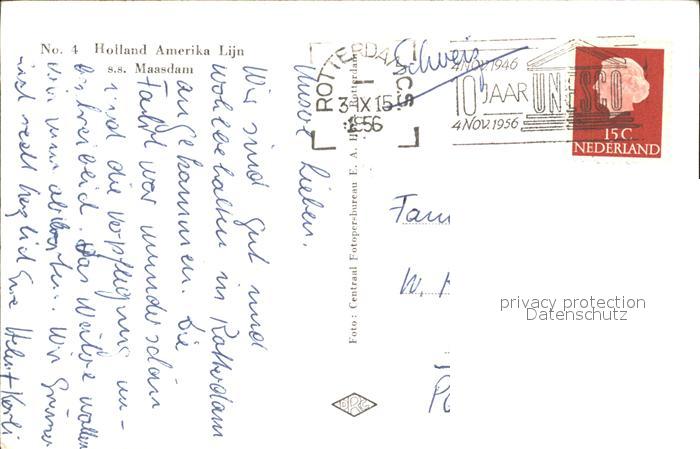 No. 4 Holland Amerika Lijn
s.s. Maasdam
Unsere Lieben.
Wir sind gut und
wohlbehalten in Rotterdam
angekommen. Die
Fahrt war wunderschön
und die Verpflegung un-
beschreiblich. Das Weitere wollen
wir nun abwarten. Wir Grüssen
und recht herzlich Eure
Foto: Centraal Fotopersbureau E. A. Rotterdam
ROTTERDAM C.S
1
3.IX 15-
1956
4 NOV. 1946
10 JAAR UNESCO
4 NOV. 1956
15 C
NEDERLAND
Schweiz
Fam
W.
privacy protection
Datenschutz